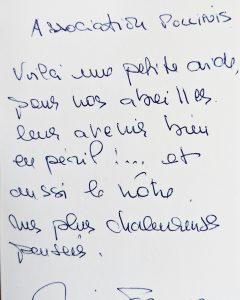 Association Pollinis
Voilà une petite aide,
pour nos abeilles
leur avenir bien
en péril !... et
aussi le nôtre
mes plus chaleureuses
pensées.